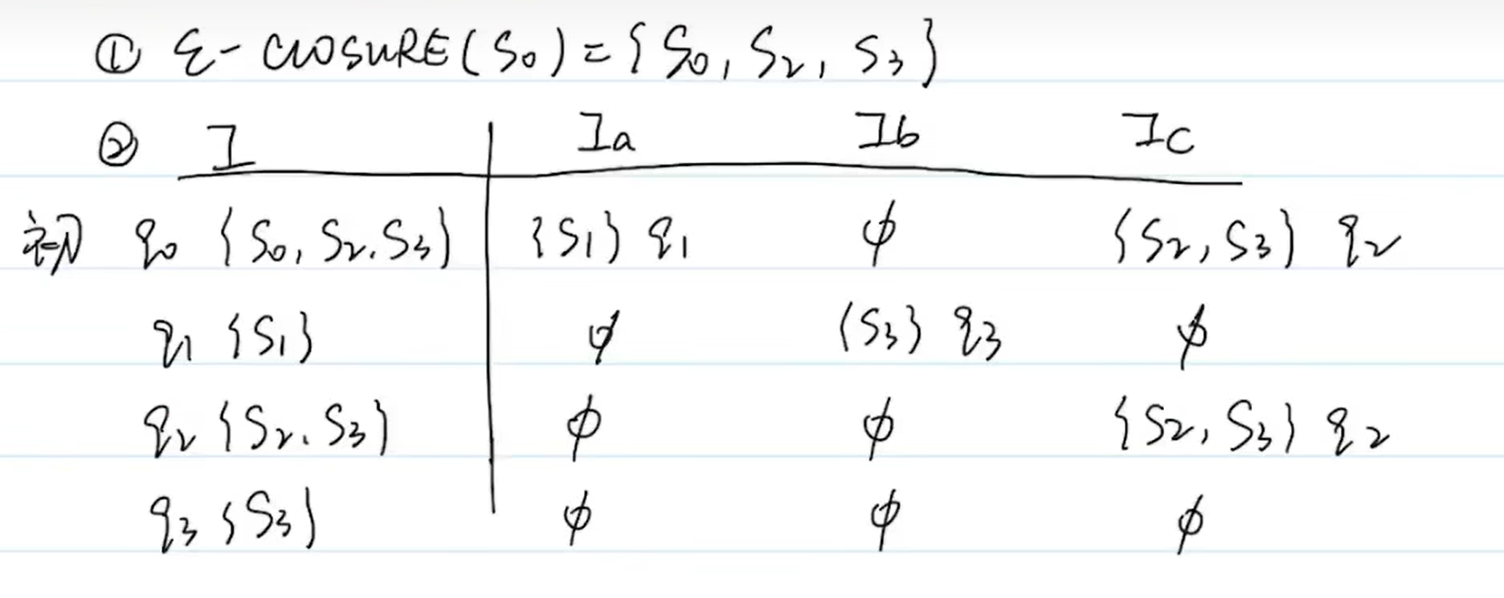 ① ε-CLOSURE(S₀)={S₀, S₂, S₃}
② I Ia Ib Ic
初 q₀ {S₀, S₂.S₃} {S₁} q₁ ϕ {S₂, S₃} q₂
q₁ {S₁} ϕ {S₃} q₃ ϕ
q₂ {S₂.S₃} ϕ ϕ {S₂, S₃} q₂
q₃ {S₃} ϕ ϕ ϕ